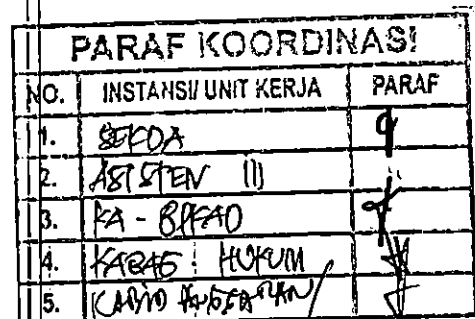 PARAF KOORDINASI
NO. INSTANSI/ UNIT KERJA PARAF
1. SEKDA
2. ASISTEN III
3. KA - BPKAD
4. KABAG HUKUM
5. KABID ANGGARAN